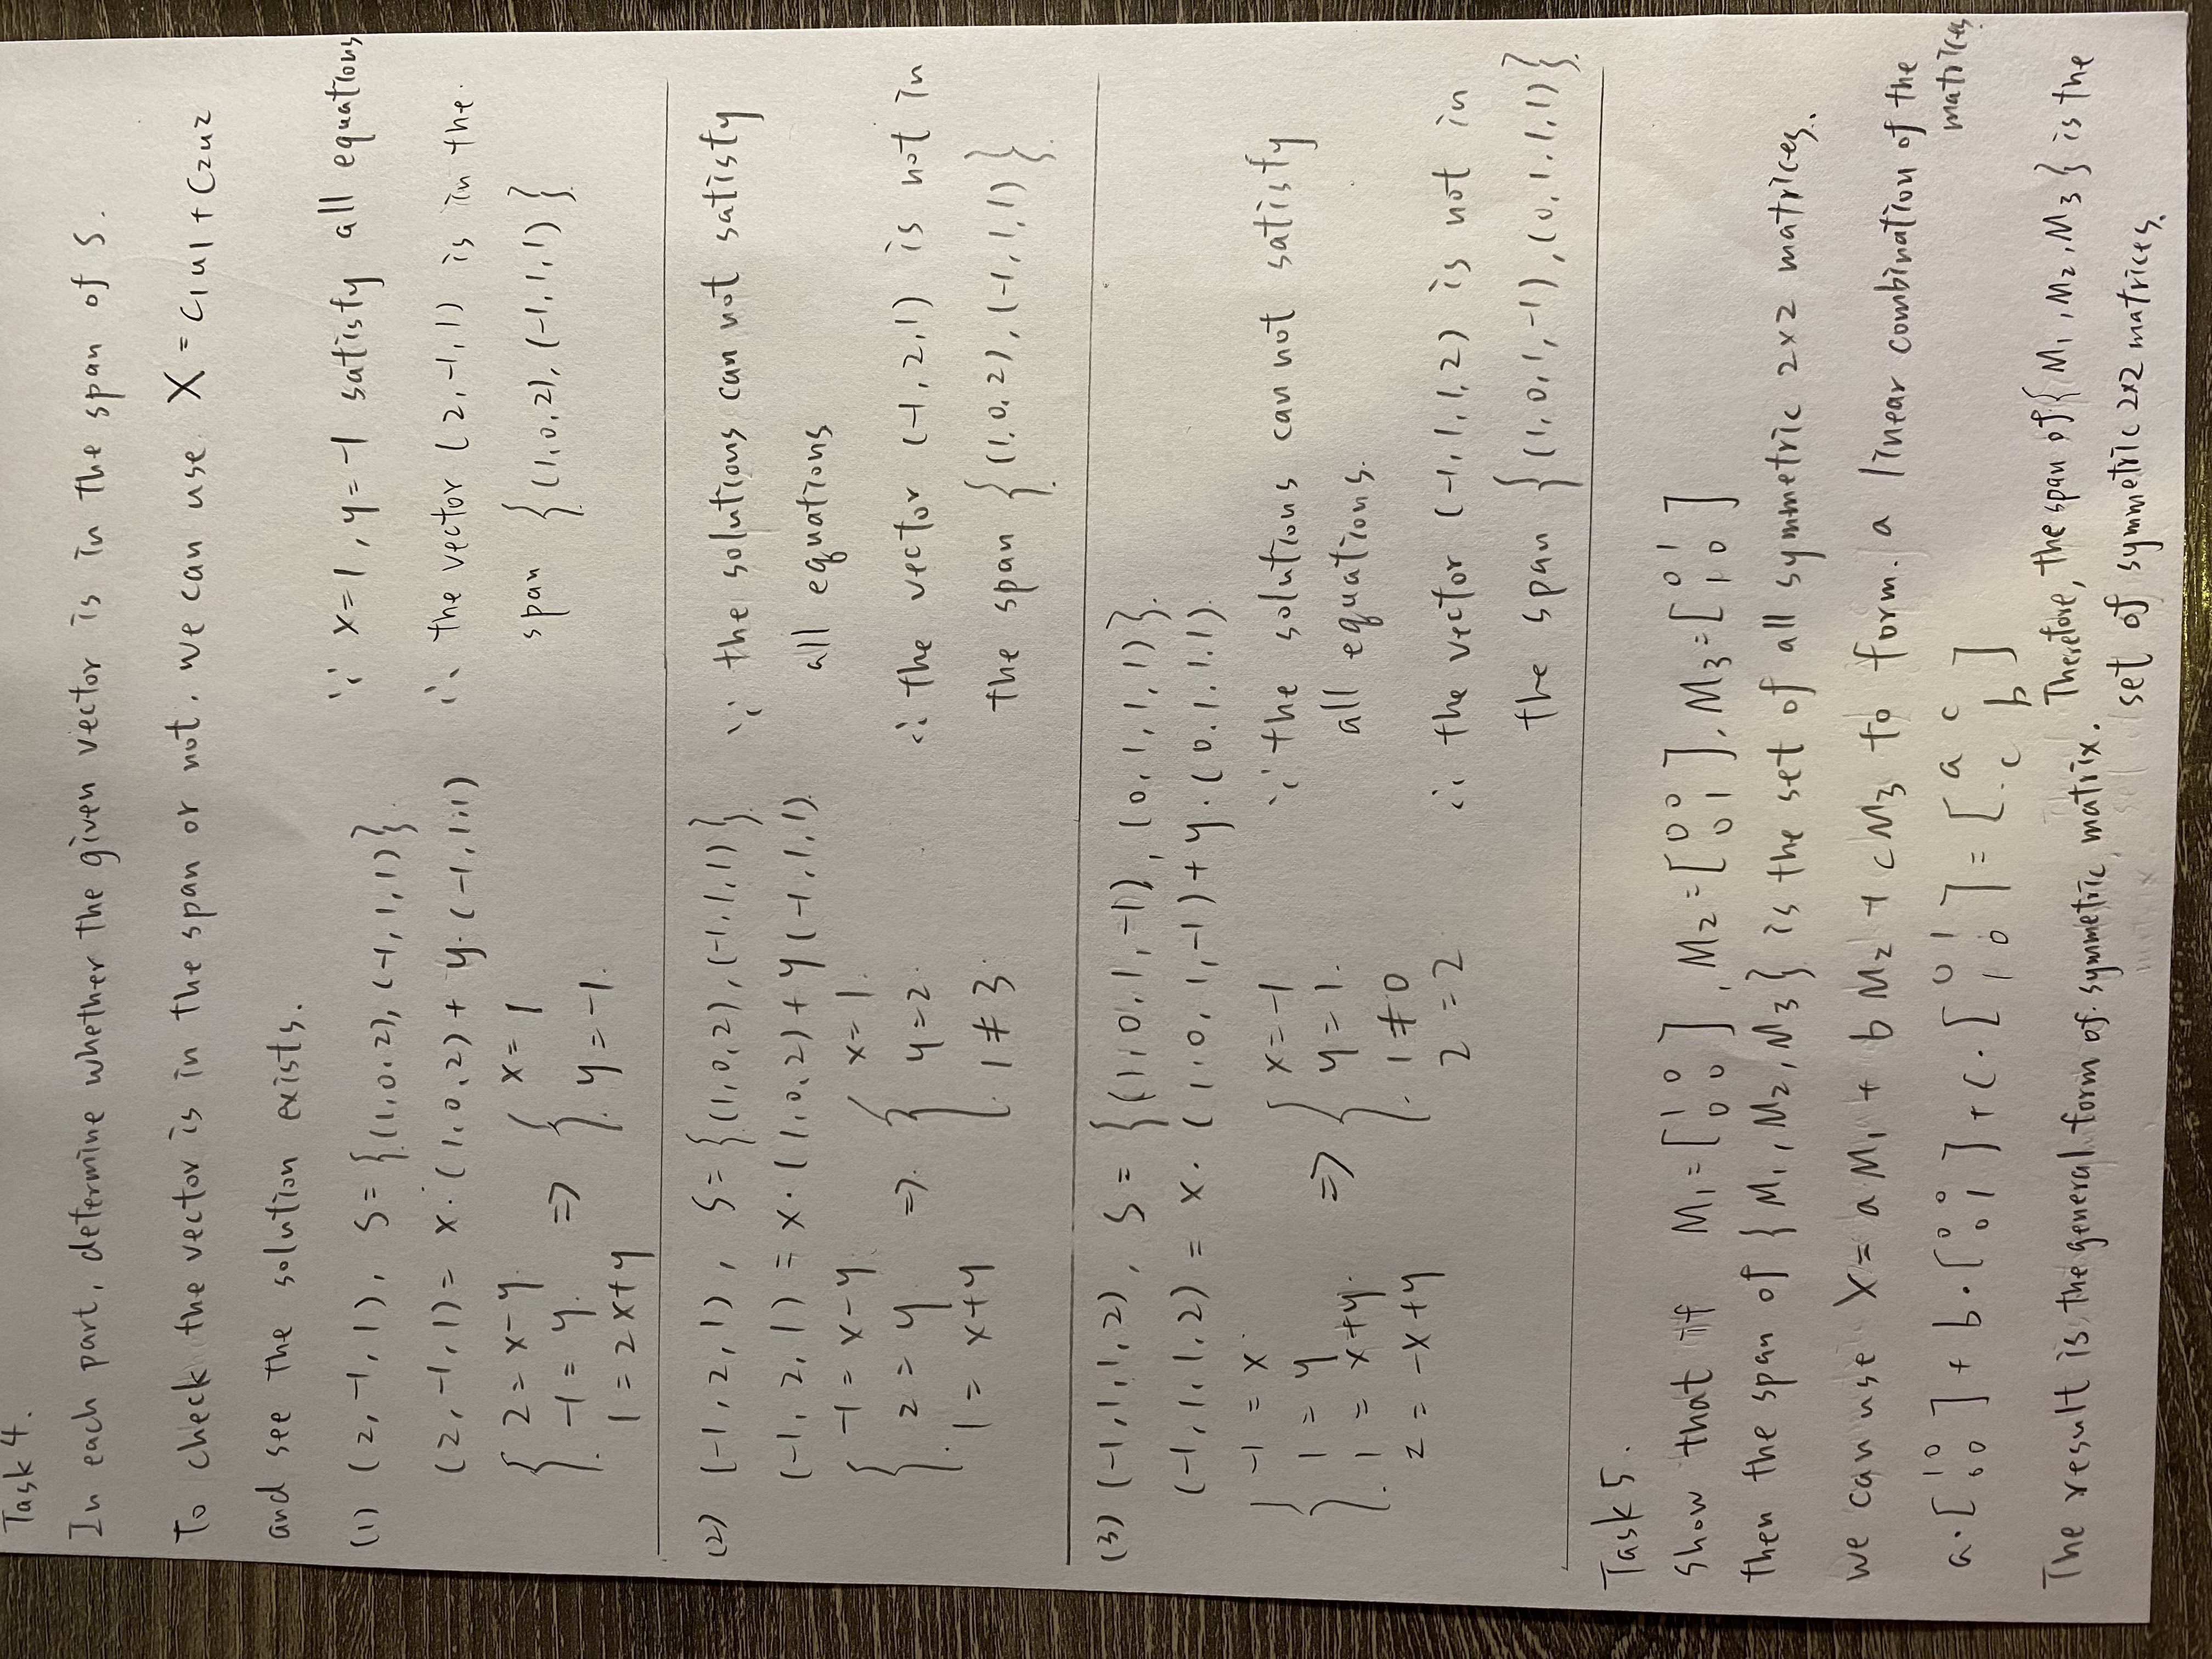 Task 4.
In each part, determine whether the given vector is in the span of S.
To check the vector is in the span or not. we can use X = c1u1 + c2u2
and see the solution exists.
(1) (2, -1, 1), S = {(1,0,2), (-1,1,1)}
(2,-1,1) = x·(1,0,2) + y·(-1,1,1)
{ 2 = x-y
-1 = y
1 = 2x+y
=> { x = 1
y = -1.
∵ x=1, y=-1 satisfy all equations
∴ the vector (2,-1,1) is in the
span {(1,0,2), (-1,1,1)}
(2) (-1, 2, 1), S = {(1,0,2), (-1,1,1)}
(-1, 2, 1) = x·(1,0,2) + y(-1,1,1)
{ -1 = x-y
2 = y
1 = x+y
=> { x = 1.
y = 2
1 ≠ 3
∵ the solutions can not satisfy
all equations
∴ the vector (-1,2,1) is not in
the span {(1,0,2), (-1,1,1)}
(3) (-1,1,1,2), S = {(1,0,1,-1), (0,1,1,1)}.
(-1,1,1,2) = x·(1,0,1,-1) + y·(0,1,1,1).
{ -1 = x
1 = y
1 = x+y
2 = -x+y
=> { x = -1
y = 1.
1 ≠ 0
2 = 2
∵ the solutions can not satisfy
all equations.
∴ the vector (-1,1,1,2) is not in
the span {(1,0,1,-1), (0,1,1,1)}
Task 5.
Show that if M1 = [1 0 0 0], M2 = [0 0 0 1], M3 = [0 1 1 0]
then the span of {M1, M2, M3} is the set of all symmetric 2x2 matrices.
we can use X = aM1 + bM2 + cM3 to form. a linear combination of the
matrices
a·[1 0 0 0] + b·[0 0 0 1] + c·[0 1 1 0] = [a c c b]
The result is the general form of symmetric matrix.
Therefore, the span of {M1, M2, M3} is the
set of symmetric 2x2 matrices.